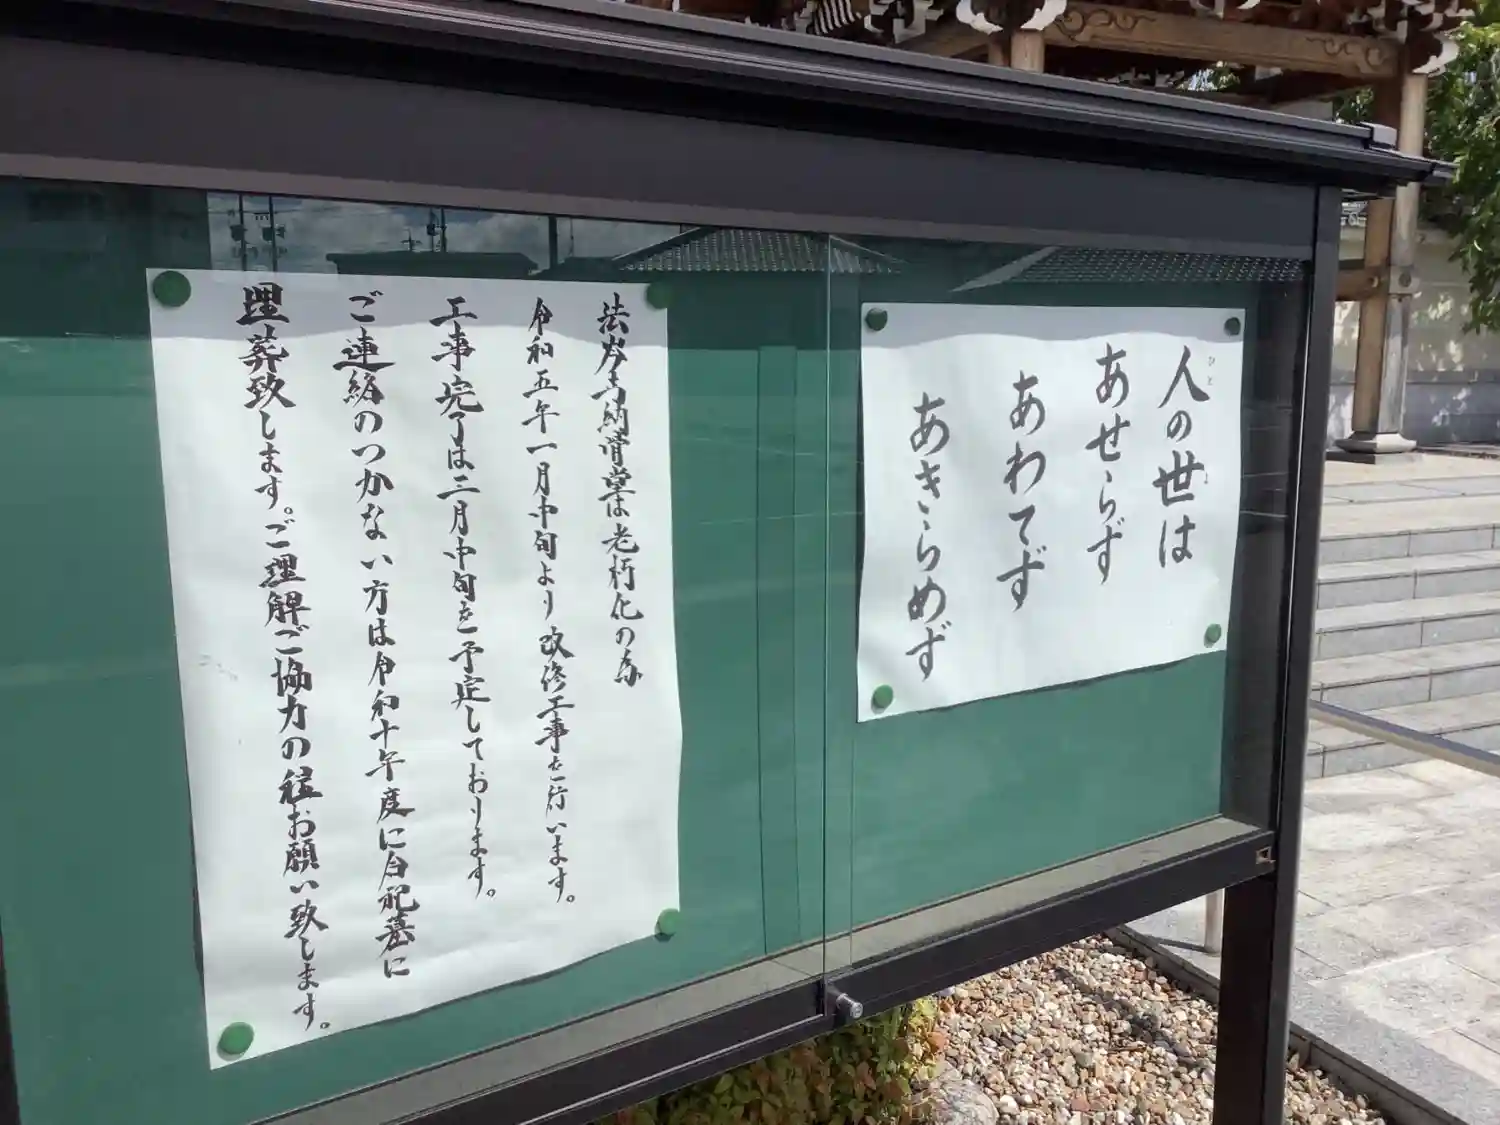 人の世は
ひと
よ
あせらず
あわてず
あきらめず
納骨堂は老朽化の為
令和五年一月中旬より改修工事を行います。
工事完了は三月中旬を予定しております。
ご連絡のつかない方は令和十年度に合祀墓に
埋葬致します。ご理解ご協力の程お願い致します。